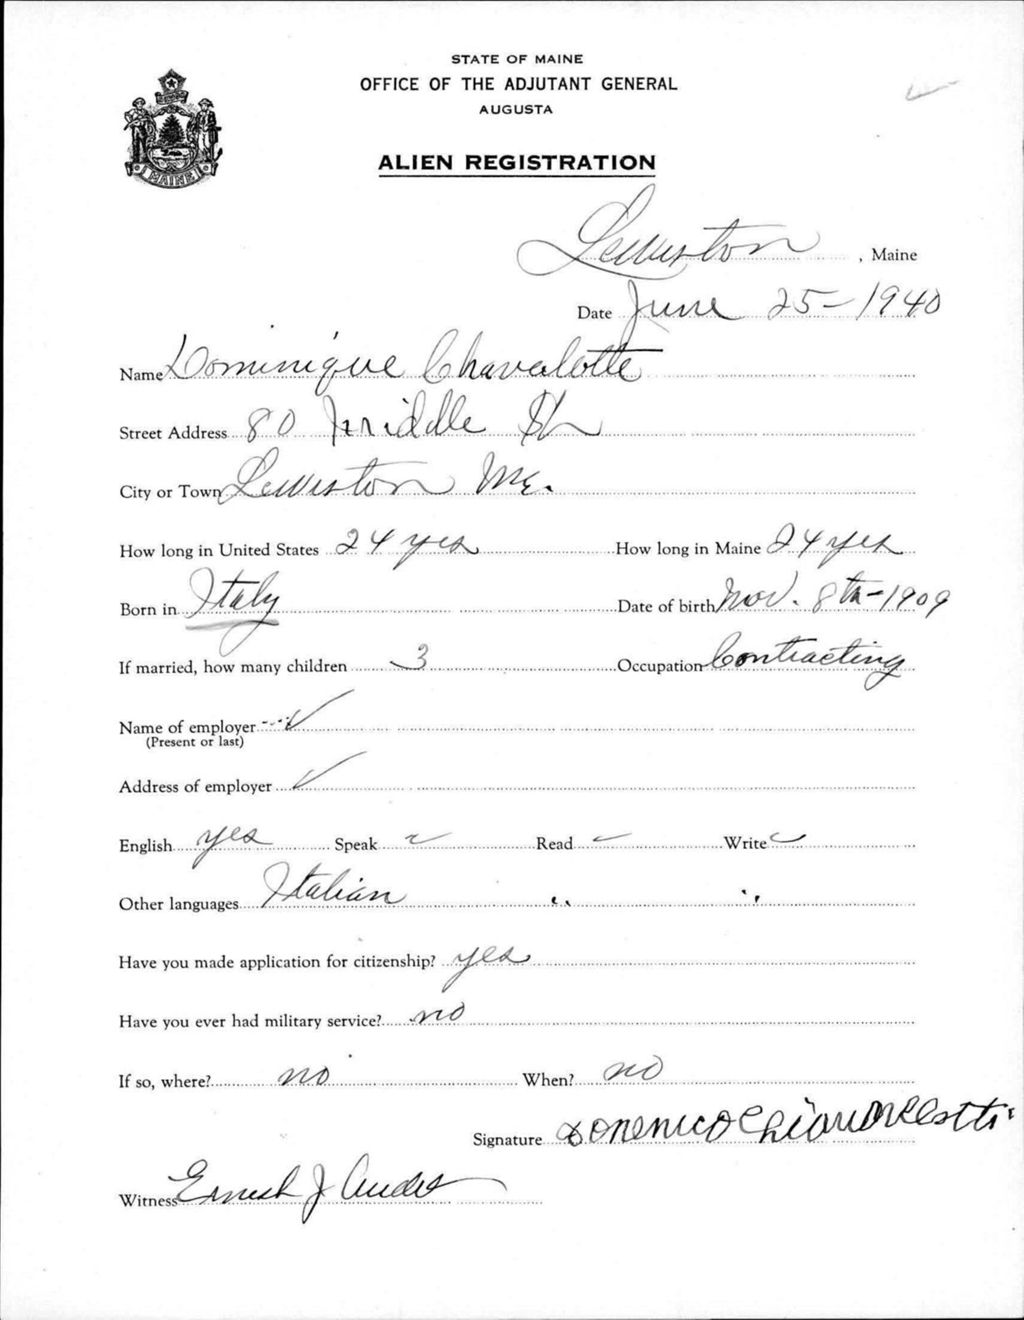 STATE OF MAINE
OFFICE OF THE ADJUTANT GENERAL
AUGUSTA
ALIEN REGISTRATION
MAINE
Lewiston, Maine
Date June 25-1940
Name Dominique Chavalotte
Street Address 80 Middle St
City or Town Lewiston Me.
How long in United States 24 yrs How long in Maine 24 yrs
Born in Italy Date of birth Nov. 8th-1909
If married, how many children 3 Occupation Contracting
Name of employer ✓
(Present or last)
Address of employer ✓
English yes Speak ✓ Read ✓ Write ✓
Other languages Italian " "
Have you made application for citizenship? yes
Have you ever had military service? no
If so, where? no When? no
Signature Domenico
Witness Ernest J